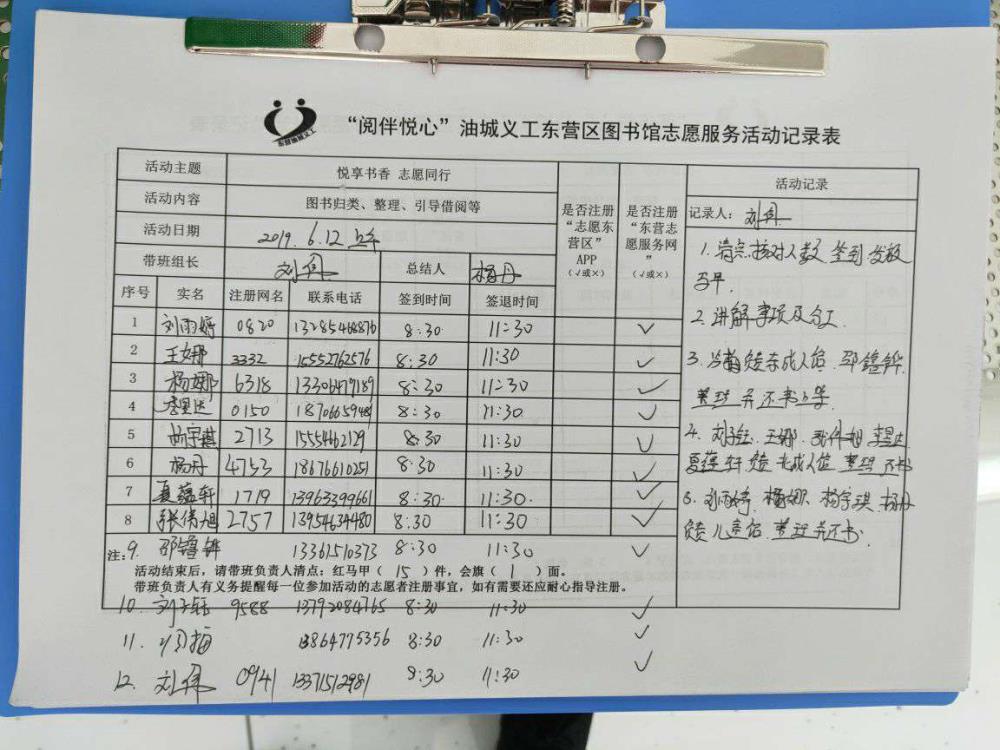 “阅伴悦心”油城义工东营区图书馆志愿服务活动记录表
活动主题 悦享书香 志愿同行
活动内容 图书归类、整理、引导借阅等
活动日期 2019.6.12 上午
带班组长 刘伟 总结人 杨丹
是否注册“志愿东营区”APP（√或×）
是否注册“东营志愿服务网”（√或×）
序号 实名 注册网名 联系电话 签到时间 签退时间
1 刘雨婷 0820 13285468876 8:30 11:30 √
2 王娜 3332 15552762576 8:30 11:30 √
3 杨娜 6318 13306479189 8:30 11:30 √
4 李昱达 0150 8:30 11:30 √
5 杨宇琪 2713 8:30 11:30 √
6 杨丹 4753 18676610251 8:30 11:30 √
7 夏蕴轩 1719 13963399661 8:30 11:30 √
8 张倩旭 2757 13954634480 8:30 11:30 √
9. 邵镱铧 13361510373 8:30 11:30 √
注：
活动结束后，请带班负责人清点：红马甲（15）件，会旗（1）面。
带班负责人有义务提醒每一位参加活动的志愿者注册事宜，如有需要还应耐心指导注册。
10. 刘子钰 9588 13792084765 8:30 11:30 √
11. 13864775356 8:30 11:30 √
12. 刘伟 0941 13371512981 8:30 11:30 √
活动记录
记录人：刘伟
1. 清点核对人数 签到 发放
马甲.
2. 讲解事项及分工.
3. 负责东成人馆. 邵镱铧
整理并还书上架
4. 刘子钰. 王娜. 李昱达
夏蕴轩 负责 北成人馆 整理 还书
5. 刘雨婷. 杨娜. 杨宇琪. 杨丹
负责儿童馆. 整理并还书.